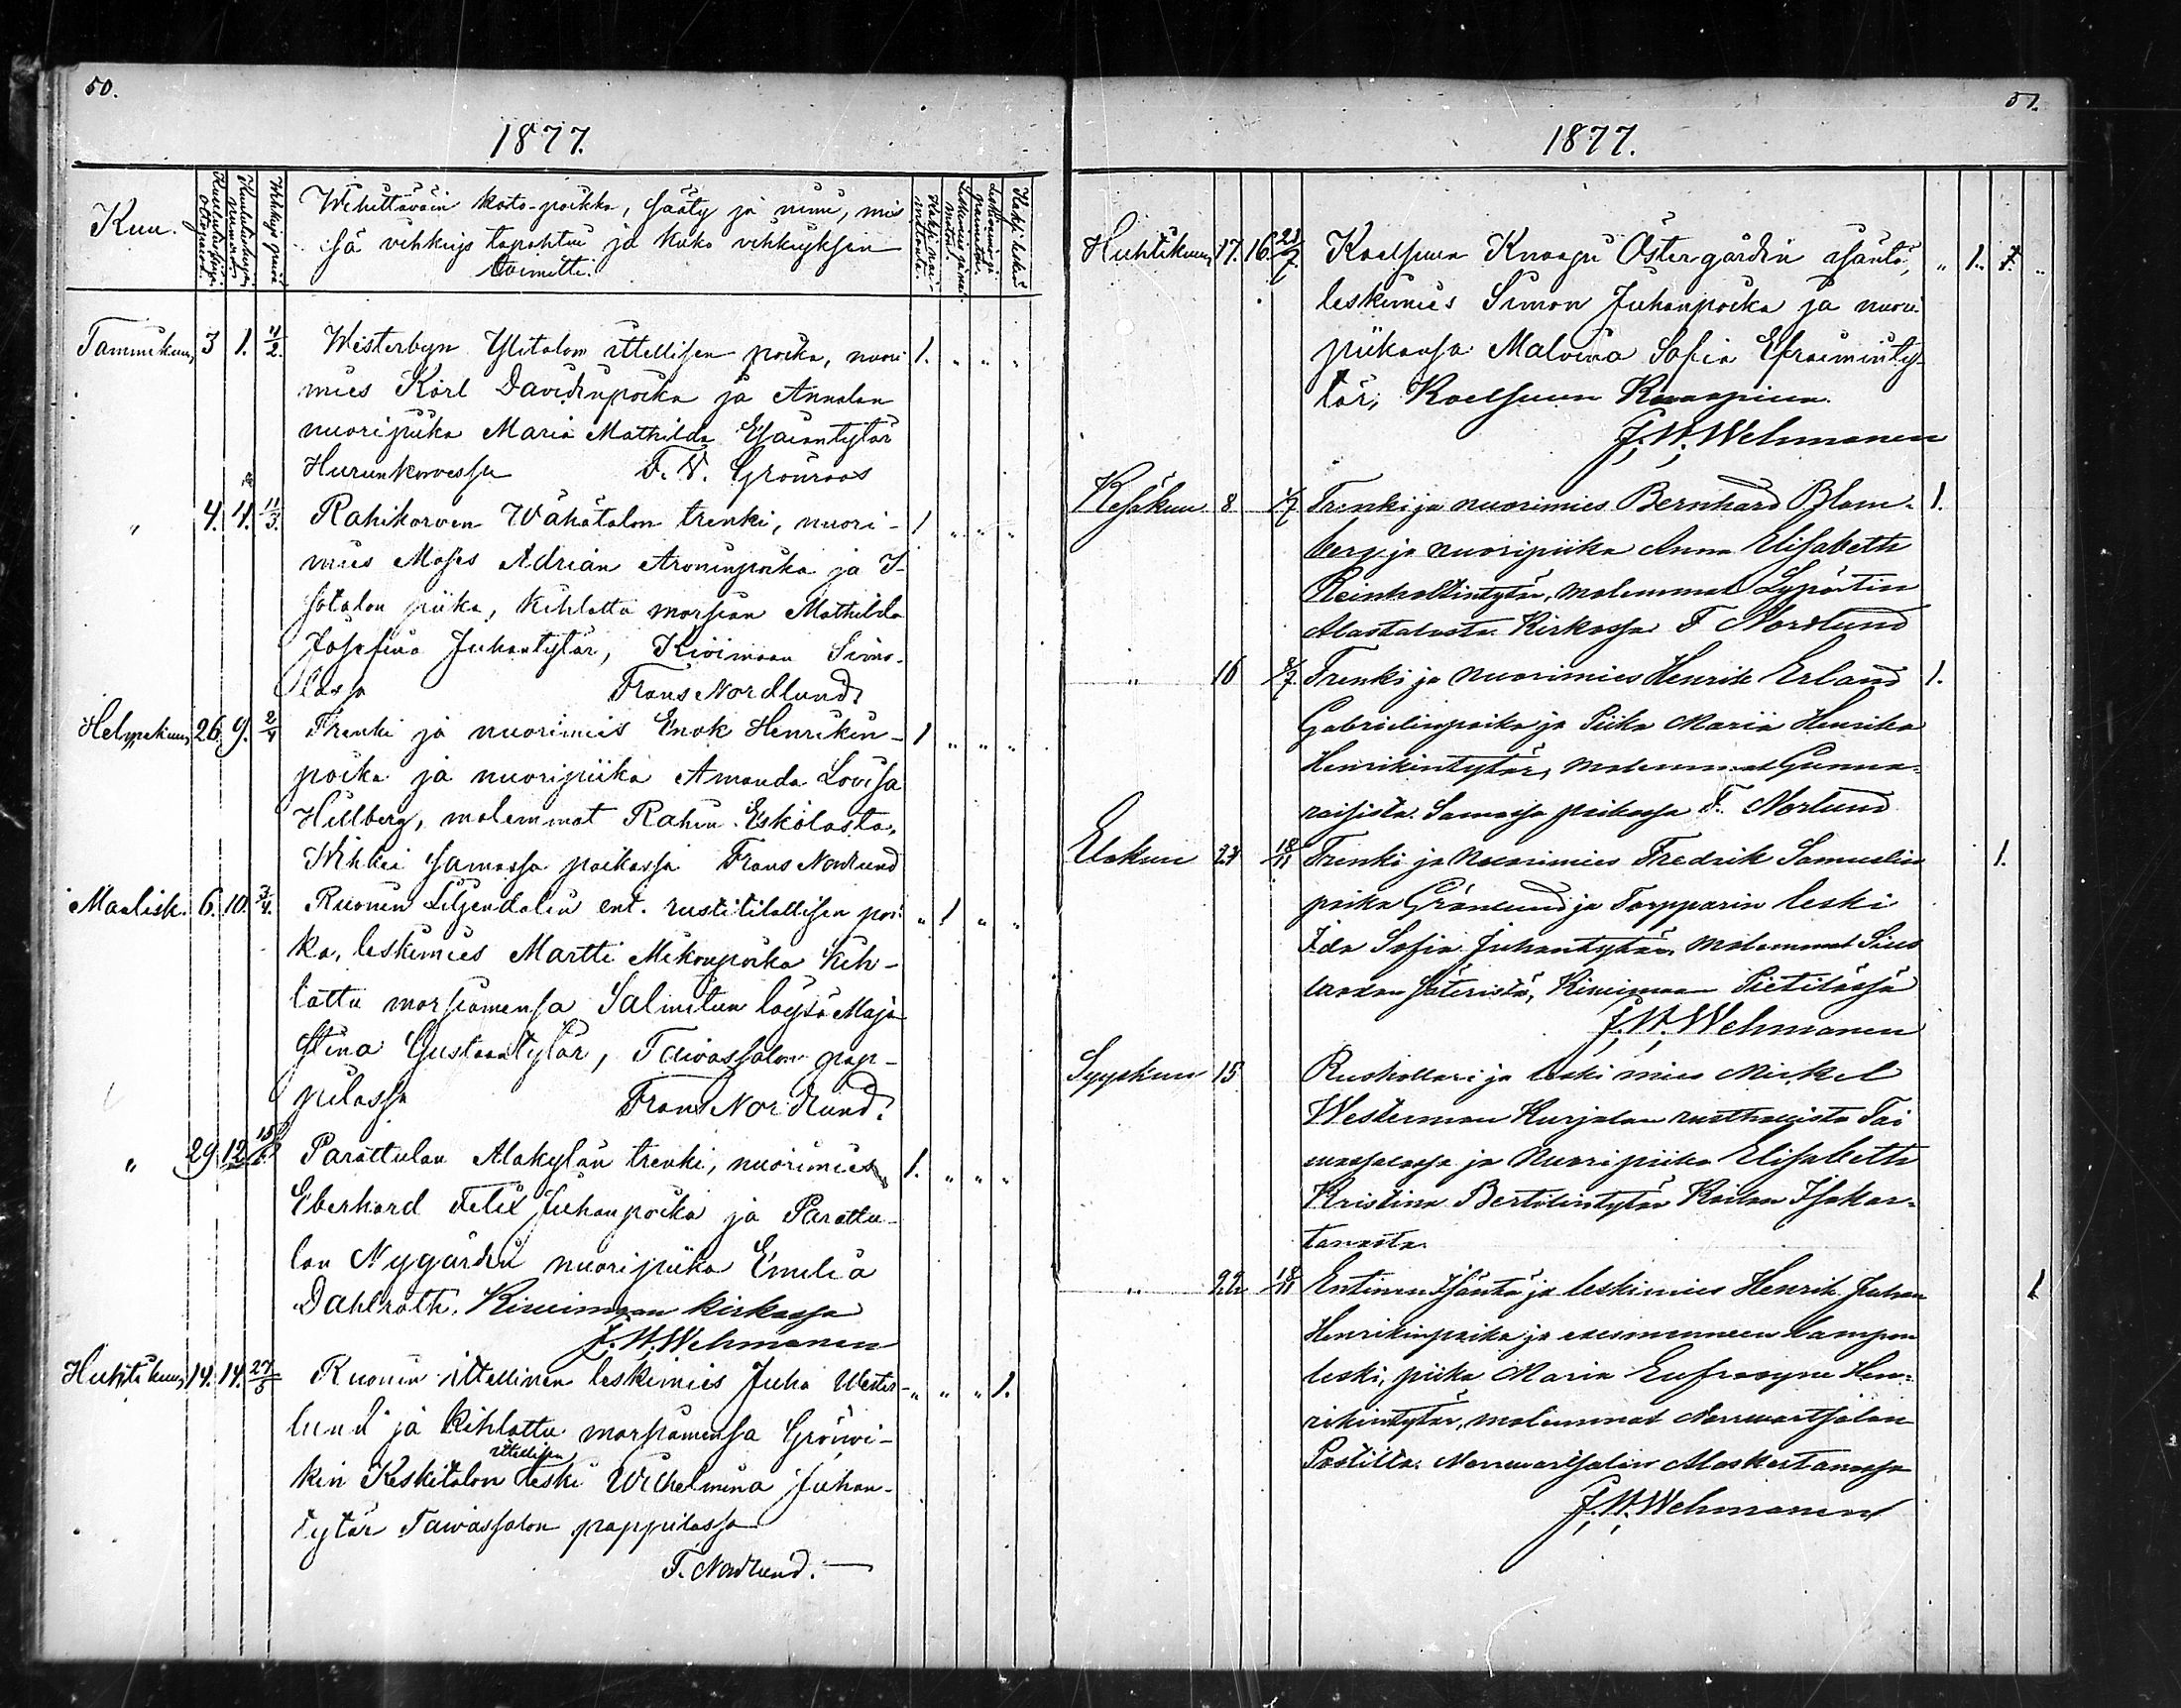 50.
1877.
Kuu.
Kuulutuskirjan
numero.
Wihkijä päivä
Wihittäväin koto-paikka, sääty ja nimi, mis-
sä vihkiys tapahtuu ja kuka vihkiyksen
toimitti.
Kaksi nai-
mattonta.
Kaksi leskeä
Tammikuu, 3 1. 11/2. Westerbyn Ylitalon itellisen poika, nuori 1. " " "
mies Karl Davidinpoika ja Annalan
nuoripiika Maria Mathilda Esaiantytär
Hurunkorvessa F. V. Grönroos
" 4. 4. 11/3. Rahikorven Wähätalon trenki, nuori- 1 " " "
mies Moses Adrian Aroninpoika ja I-
sotalon piika, kihlattu morsian Mathilda
Josefina Juhantytär, Kivimaan Simo-
lassa Frans Nordlund
Helmikuu, 26 9. 2/4 Trenki ja nuorimies Enok Henrikin- 1 " " "
poika ja nuoripiika Amanda Lovisa
Hillberg, molemmat Rahin Eskolasta.
Wihkei samassa paikassa Frans Nordlund
Maalisk. 6. 10. 3/4. Ruonin Liljendalin ent. rustitilallisen poi- " 1 " "
ka, leskimies Martti Mikonpoika kih-
lattu morsiamensa Salmitun loysä Maja
Stina Gustaantytär, Taivassalon pap-
pilassa Frans Nordlund.
" 29 12 Parattulan Alakylän trenki, nuorimies 1. " " "
Eberhard Felix Juhanpoika ja Parattu-
lan Nygårdin nuoripiika Emilia
Dahlroth. Kiwimaan kirkossa
J. W. Wehmanen
Huhtikuu, 14. 14. 27/5 Ruonin itellinen leskimies Juha Wester- " " " 1.
lund ja kihlattu morsiamensa Grönvi-
itellisen
kin Keskitalon leski Wilhelmina Juhan-
tytär Taivassalon pappilassa
F. Nordlund.
51.
1877.
Huhtikuu, 17. 16. Kaelsuun Knaapi Östergårdin isäntä, " 1. "
leskimies Simon Juhanpoika ja nuori
piikansa Malvina Sofia Efraiminty-
tär, Kaelsuun Knaapissa.
J. W. Wehmanen
Kesäkuu 8 1/7 Trenki ja nuorimies Bernhard Blom- 1.
berg ja nuoripiika Anna Elisabeth
Reinholdintytär, molemmat Lypörtin
Alastalosta. Kirkossa F Nordlund
" 16 Trenki ja nuorimies Henrik Erland 1.
Gabrielinpoika ja Piika Maria Henrika
Henrikintytär, molemmat Gunna-
raisista. Samassa paikassa F. Norlund
Elokuu 18/11 Trenki ja Nuorimies Fredrik Samuelin 1.
poika Grönlund ja Torpparin leski
Ida Sofia Juhantytär, molemmat
säteristä, Kiwimaan Pietilässä
J. W. Wehmanen
Syyskuu 15 Rushollari ja leski mies Mickel
Westerman Kurjalan rusthollista Tai
wassalossa ja Nuoripiika Elisabeth
Kristina Bertilintytär Isokar-
tanosta.
" 22 18/11 Entinen Isäntä ja leskimies Henrik Juhan 1
Henrikinpoika ja edesmenneen
leski, piika Maria Eufrosyne Hen-
rikintytär, molemmat
J. W. Wehmanen